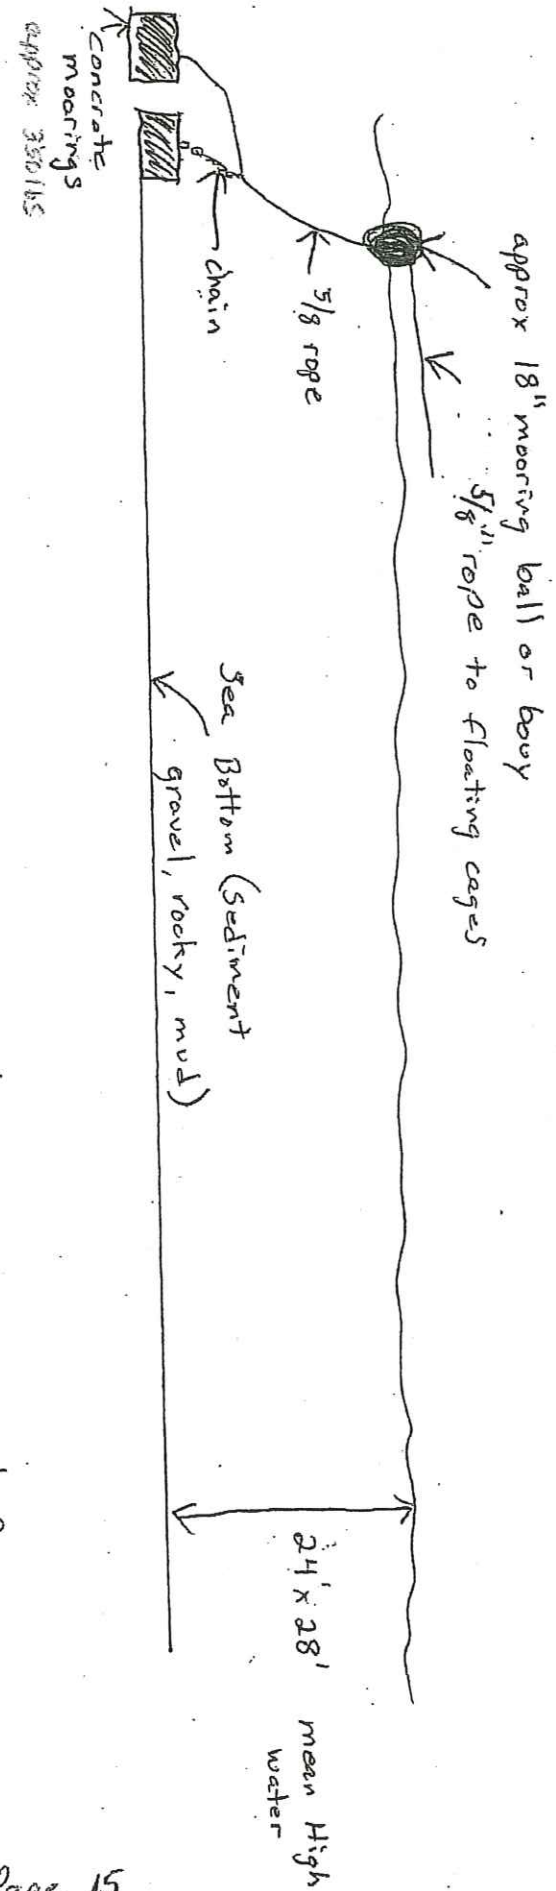 approx 18" mooring ball or bouy
5/8" rope to floating cages
5/8 rope
chain
concrete
moorings
approx 350 lbs
Sea Bottom (sediment
gravel, rocky, mud)
24' x 28'
mean High
water
Page 15